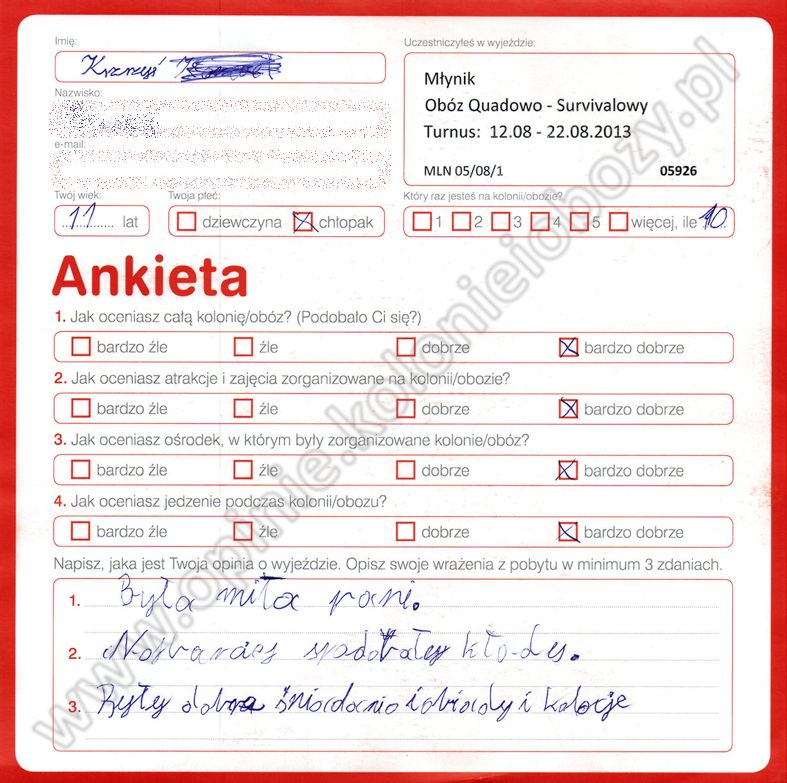 Imię:
Krzzyś
Uczestniczyłeś w wyjeździe:
Młynik
Obóz Quadowo - Survivalowy
Turnus: 12.08 - 22.08.2013
MLN 05/08/1 05926
Nazwisko:
e-mail:
Twój wiek:
11 lat
Twoja płeć:
dziewczyna chłopak
Który raz jesteś na kolonii/obozie?
1 2 3 4 5 więcej, ile 10
Ankieta
1. Jak oceniasz całą kolonię/obóz? (Podobało Ci się?)
bardzo źle źle dobrze bardzo dobrze
2. Jak oceniasz atrakcje i zajęcia zorganizowane na kolonii/obozie?
bardzo źle źle dobrze bardzo dobrze
3. Jak oceniasz ośrodek, w którym były zorganizowane kolonie/obóz?
bardzo źle źle dobrze bardzo dobrze
4. Jak oceniasz jedzenie podczas kolonii/obozu?
bardzo źle źle dobrze bardzo dobrze
Napisz, jaka jest Twoja opinia o wyjeździe. Opisz swoje wrażenia z pobytu w minimum 3 zdaniach.
1. Była miła pani.
2.
3. Były dobra śniadania i obiady i kolacje
www.opinie.kolonieiobozy.pl